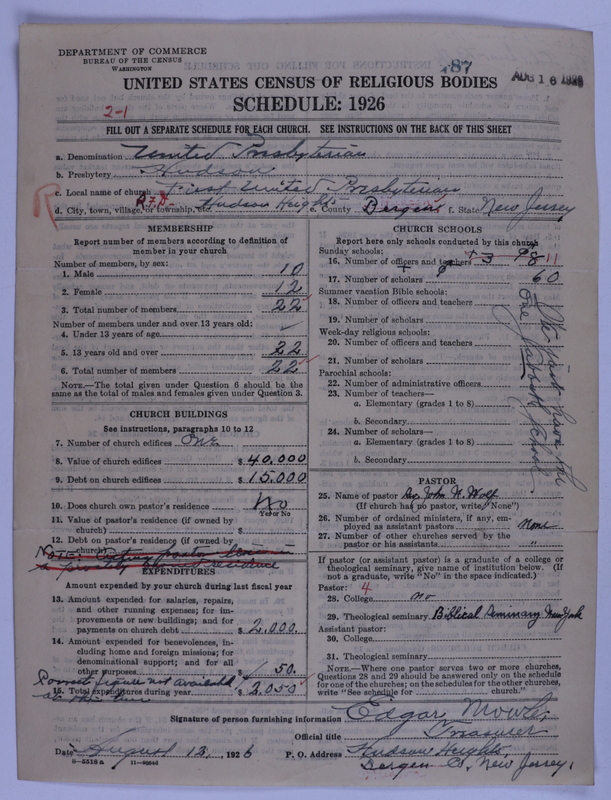 DEPARTMENT OF COMMERCE
BUREAU OF THE CENSUS
WASHINGTON
87
AUG 16 1926
UNITED STATES CENSUS OF RELIGIOUS BODIES
SCHEDULE: 1926
2-1
FILL OUT A SEPARATE SCHEDULE FOR EACH CHURCH. SEE INSTRUCTIONS ON THE BACK OF THIS SHEET
a. Denomination United Presbyterian
b. Presbytery Hudson
c. Local name of church First United Presbyterian
R
d. City, town, village, or township, etc. R.F.D. Hudson Heights e. County Bergen f. State New Jersey
MEMBERSHIP
Report number of members according to definition of member in your church
Number of members, by sex:
1. Male 10
2. Female 12
3. Total number of members 22
Number of members under and over 13 years old:
4. Under 13 years of age
5. 13 years old and over 22
6. Total number of members 22
NOTE.—The total given under Question 6 should be the same as the total of males and females given under Question 3.
CHURCH BUILDINGS
See instructions, paragraphs 10 to 12
7. Number of church edifices One
8. Value of church edifices $ 40.000
9. Debt on church edifices $ 15.000
10. Does church own pastor's residence No
Yes or No
11. Value of pastor's residence (if owned by church) $
12. Debt on pastor's residence (if owned by church)
Note: pastor lives in
a privately owned residence
EXPENDITURES
Amount expended by your church during last fiscal year
13. Amount expended for salaries, repairs, and other running expenses; for improvements or new buildings; and for payments on church debt $ 2.000.
14. Amount expended for benevolences, including home and foreign missions; for denominational support; and for all other purposes $ 50.
Correct figure not available
at this time
15. Total expenditures during year $ 2.050
CHURCH SCHOOLS
Report here only schools conducted by this church
Sunday schools:
16. Number of officers and teachers + 3 8 11
17. Number of scholars 60
Summer vacation Bible schools:
18. Number of officers and teachers
19. Number of scholars
Week-day religious schools:
20. Number of officers and teachers
21. Number of scholars
Parochial schools:
22. Number of administrative officers
23. Number of teachers—
a. Elementary (grades 1 to 8)
b. Secondary
24. Number of scholars—
a. Elementary (grades 1 to 8)
b. Secondary
have the
one Sabbath School
PASTOR
25. Name of pastor Rev John W. Wolf
(If church has no pastor, write "None")
26. Number of ordained ministers, if any, employed as assistant pastors None
27. Number of other churches served by the pastor or his assistants "
If pastor (or assistant pastor) is a graduate of a college or theological seminary, give name of institution below. (If not a graduate, write "No" in the space indicated.)
Pastor: 4
28. College no
29. Theological seminary Biblical Seminary New York
Assistant pastor:
30. College
31. Theological seminary
NOTE.—Where one pastor serves two or more churches, Questions 28 and 29 should be answered only on the schedule for one of the churches; on the schedules for the other churches, write "See schedule for church."
Signature of person furnishing information Edgar
Official title Treasurer
Date August 13, 1926 P. O. Address Hudson Heights
Bergen Co, New Jersey.
8-5518 a